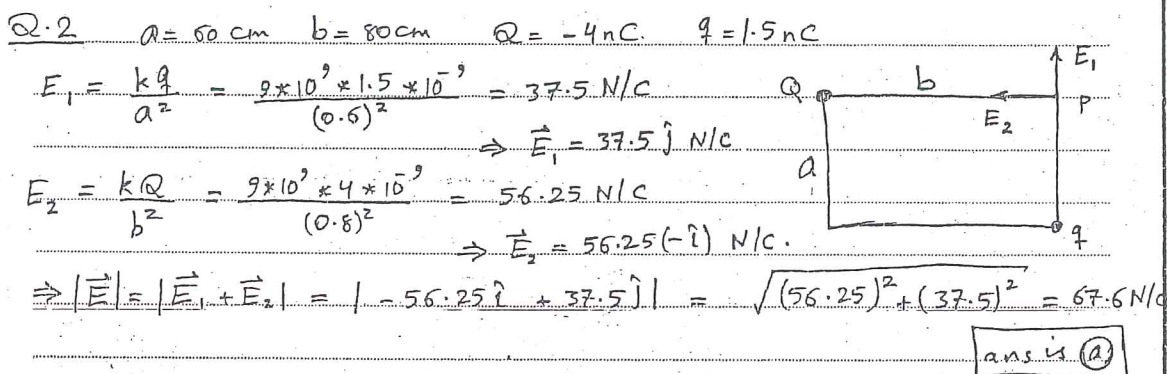 Q.2 a = 60 cm b = 80 cm Q = -4 nC. q = 1.5 nC
E₁ = kq/a² = 9*10⁹ * 1.5 * 10⁻⁹/(0.6)² = 37.5 N/C
⇒ E⃗₁ = 37.5 ĵ N/C
E₂ = kQ/b² = 9*10⁹ * 4 * 10⁻⁹/(0.8)² = 56.25 N/C
⇒ E⃗₂ = 56.25 (-î) N/C.
⇒ |E⃗| = |E⃗₁ + E⃗₂| = | - 56.25 î + 37.5 ĵ | = √((56.25)² + (37.5)²) = 67.6 N/C
ans is ⓐ
E₁
Q b P
E₂
a
q